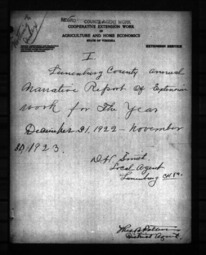 COOPERATIVE EXTENSION WORK
IN
AGRICULTURE AND HOME ECONOMICS
STATE OF VIRGINIA
EXTENSION SERVICE
I
Lunenburg County annual
Narrative Report of Extension
work for the Year
December 31, 1922 - November
30, 1923.
Local Agent
Lunenburg
District Agent.